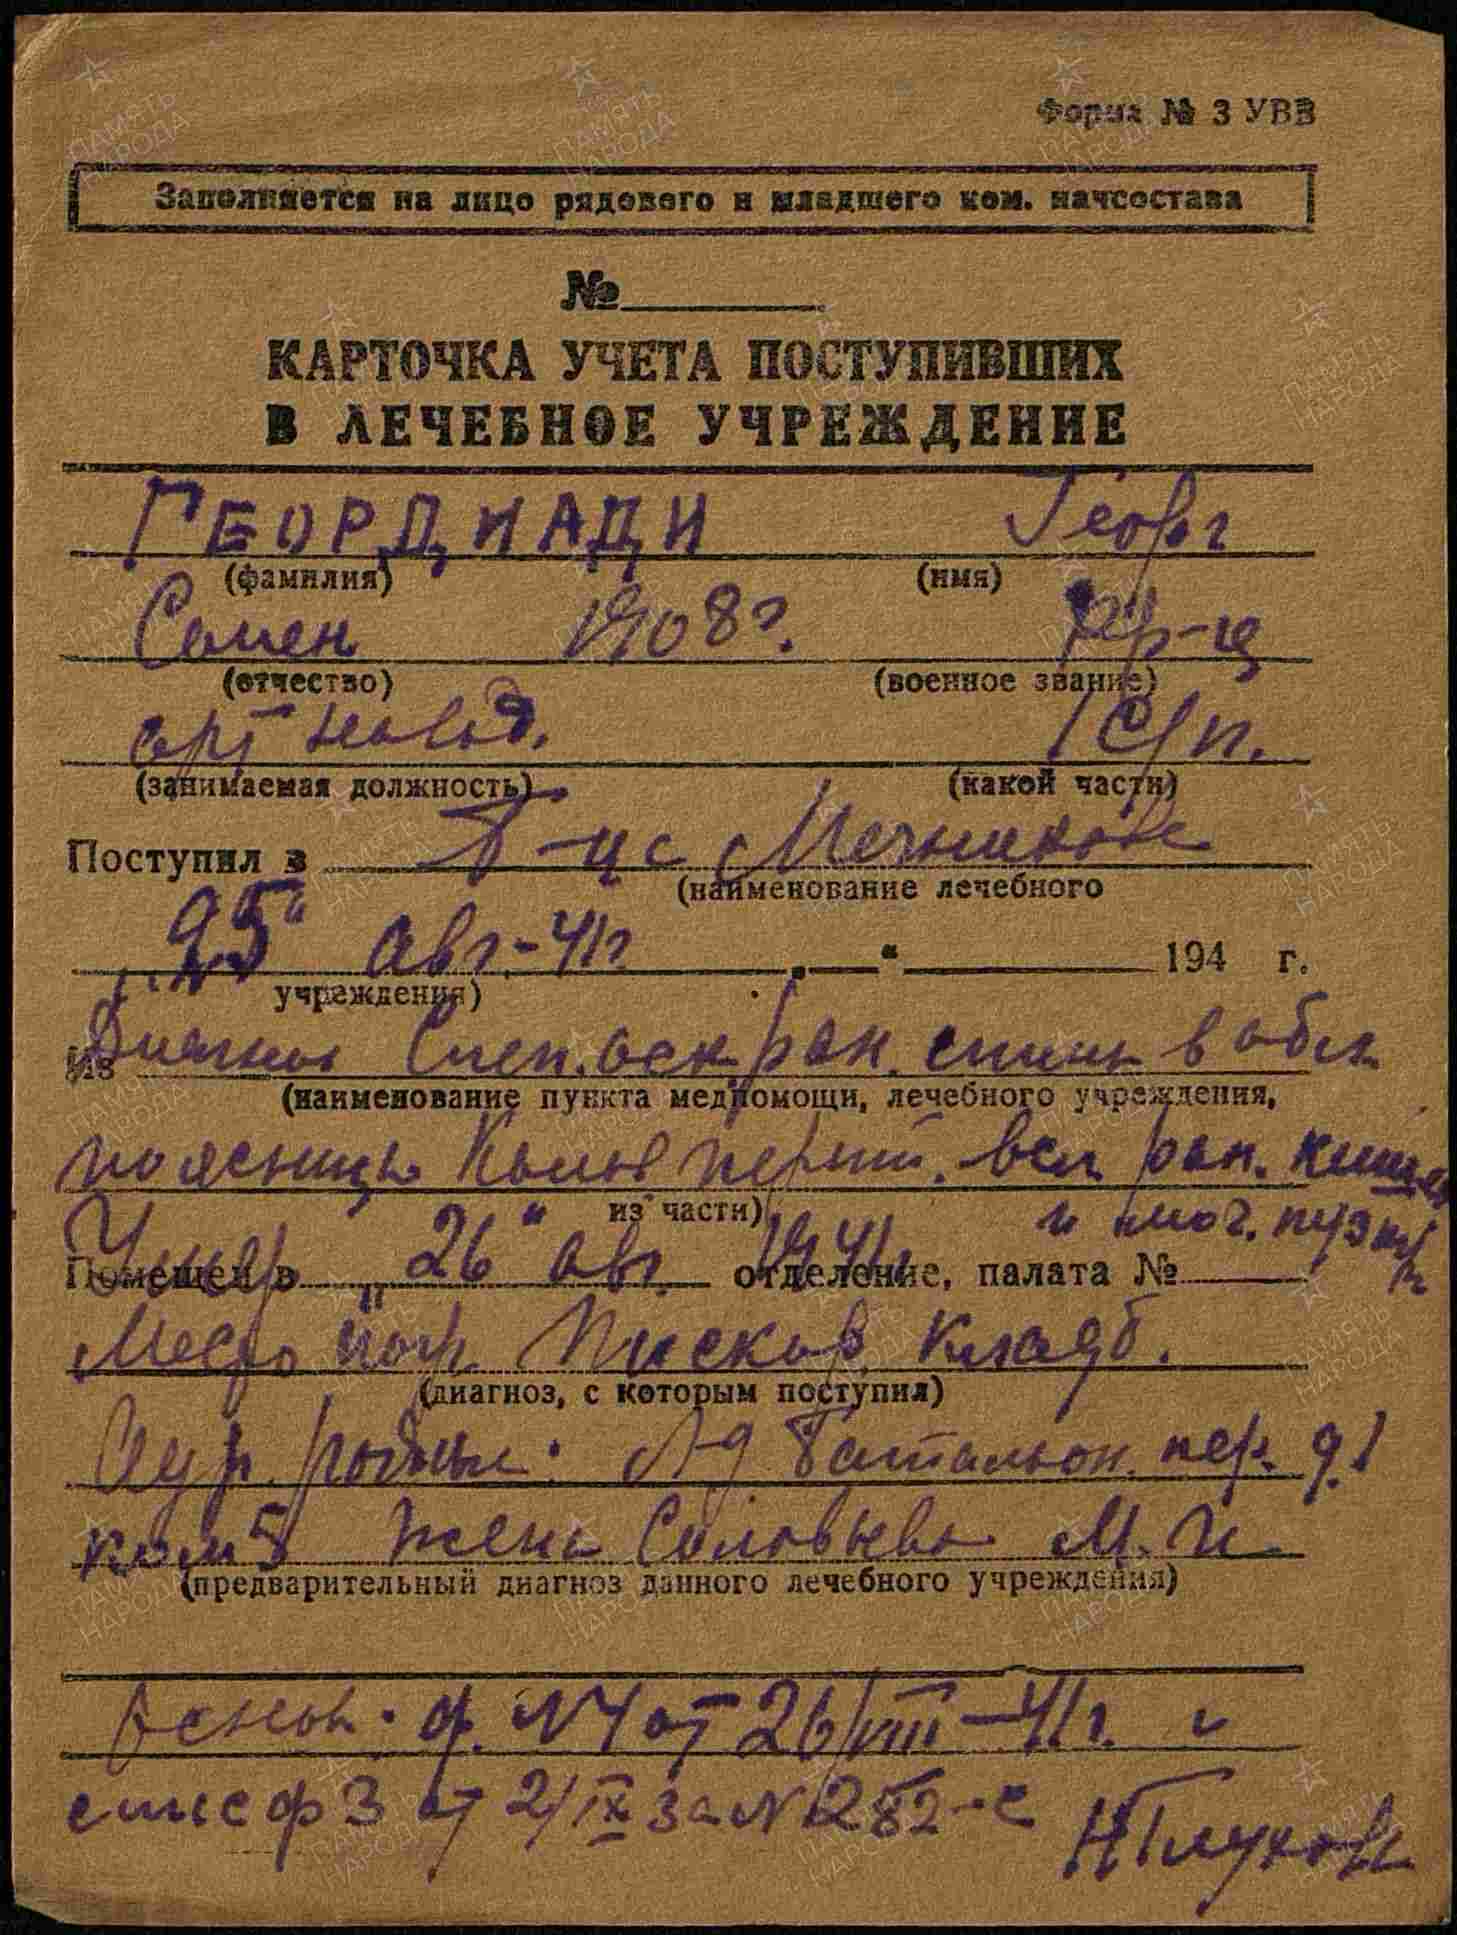 Форма № 3 УВВ
Заполняется на лицо рядового и младшего ком. начсостава
№
КАРТОЧКА УЧЕТА ПОСТУПИВШИХ
В ЛЕЧЕБНОЕ УЧРЕЖДЕНИЕ
ГЕОРДИАДИ Георг
(фамилия) (имя)
Семен 1908 г. кр-ц
(отчество) (военное звание)
(занимаемая должность) (какой части)
Поступил в Б-цс Мечникова
(наименование лечебного
"25" авг.-41г „ “ 194 г.
учреждения)
Из Диагноз Слеп. оск. ран. спины в обл.
(наименование пункта медпомощи, лечебного учреждения,
поясницы Калов. перит. всл. ран. кишеч
из части)
и моч. пузыря
Помещен в отделение, палата №
Умер "26" авг. 1941г
Место пох. Писков. кладб.
(диагноз, с которым поступил)
Адр. родных: Л-д Батальон. пер. д. 1
ком 5 жена Соловьева М. И.
(предварительный диагноз данного лечебного учреждения)
Основ. ф. №4 от 26/VIII-41г. и
спис ф 3 от 2/IX за № 282-с